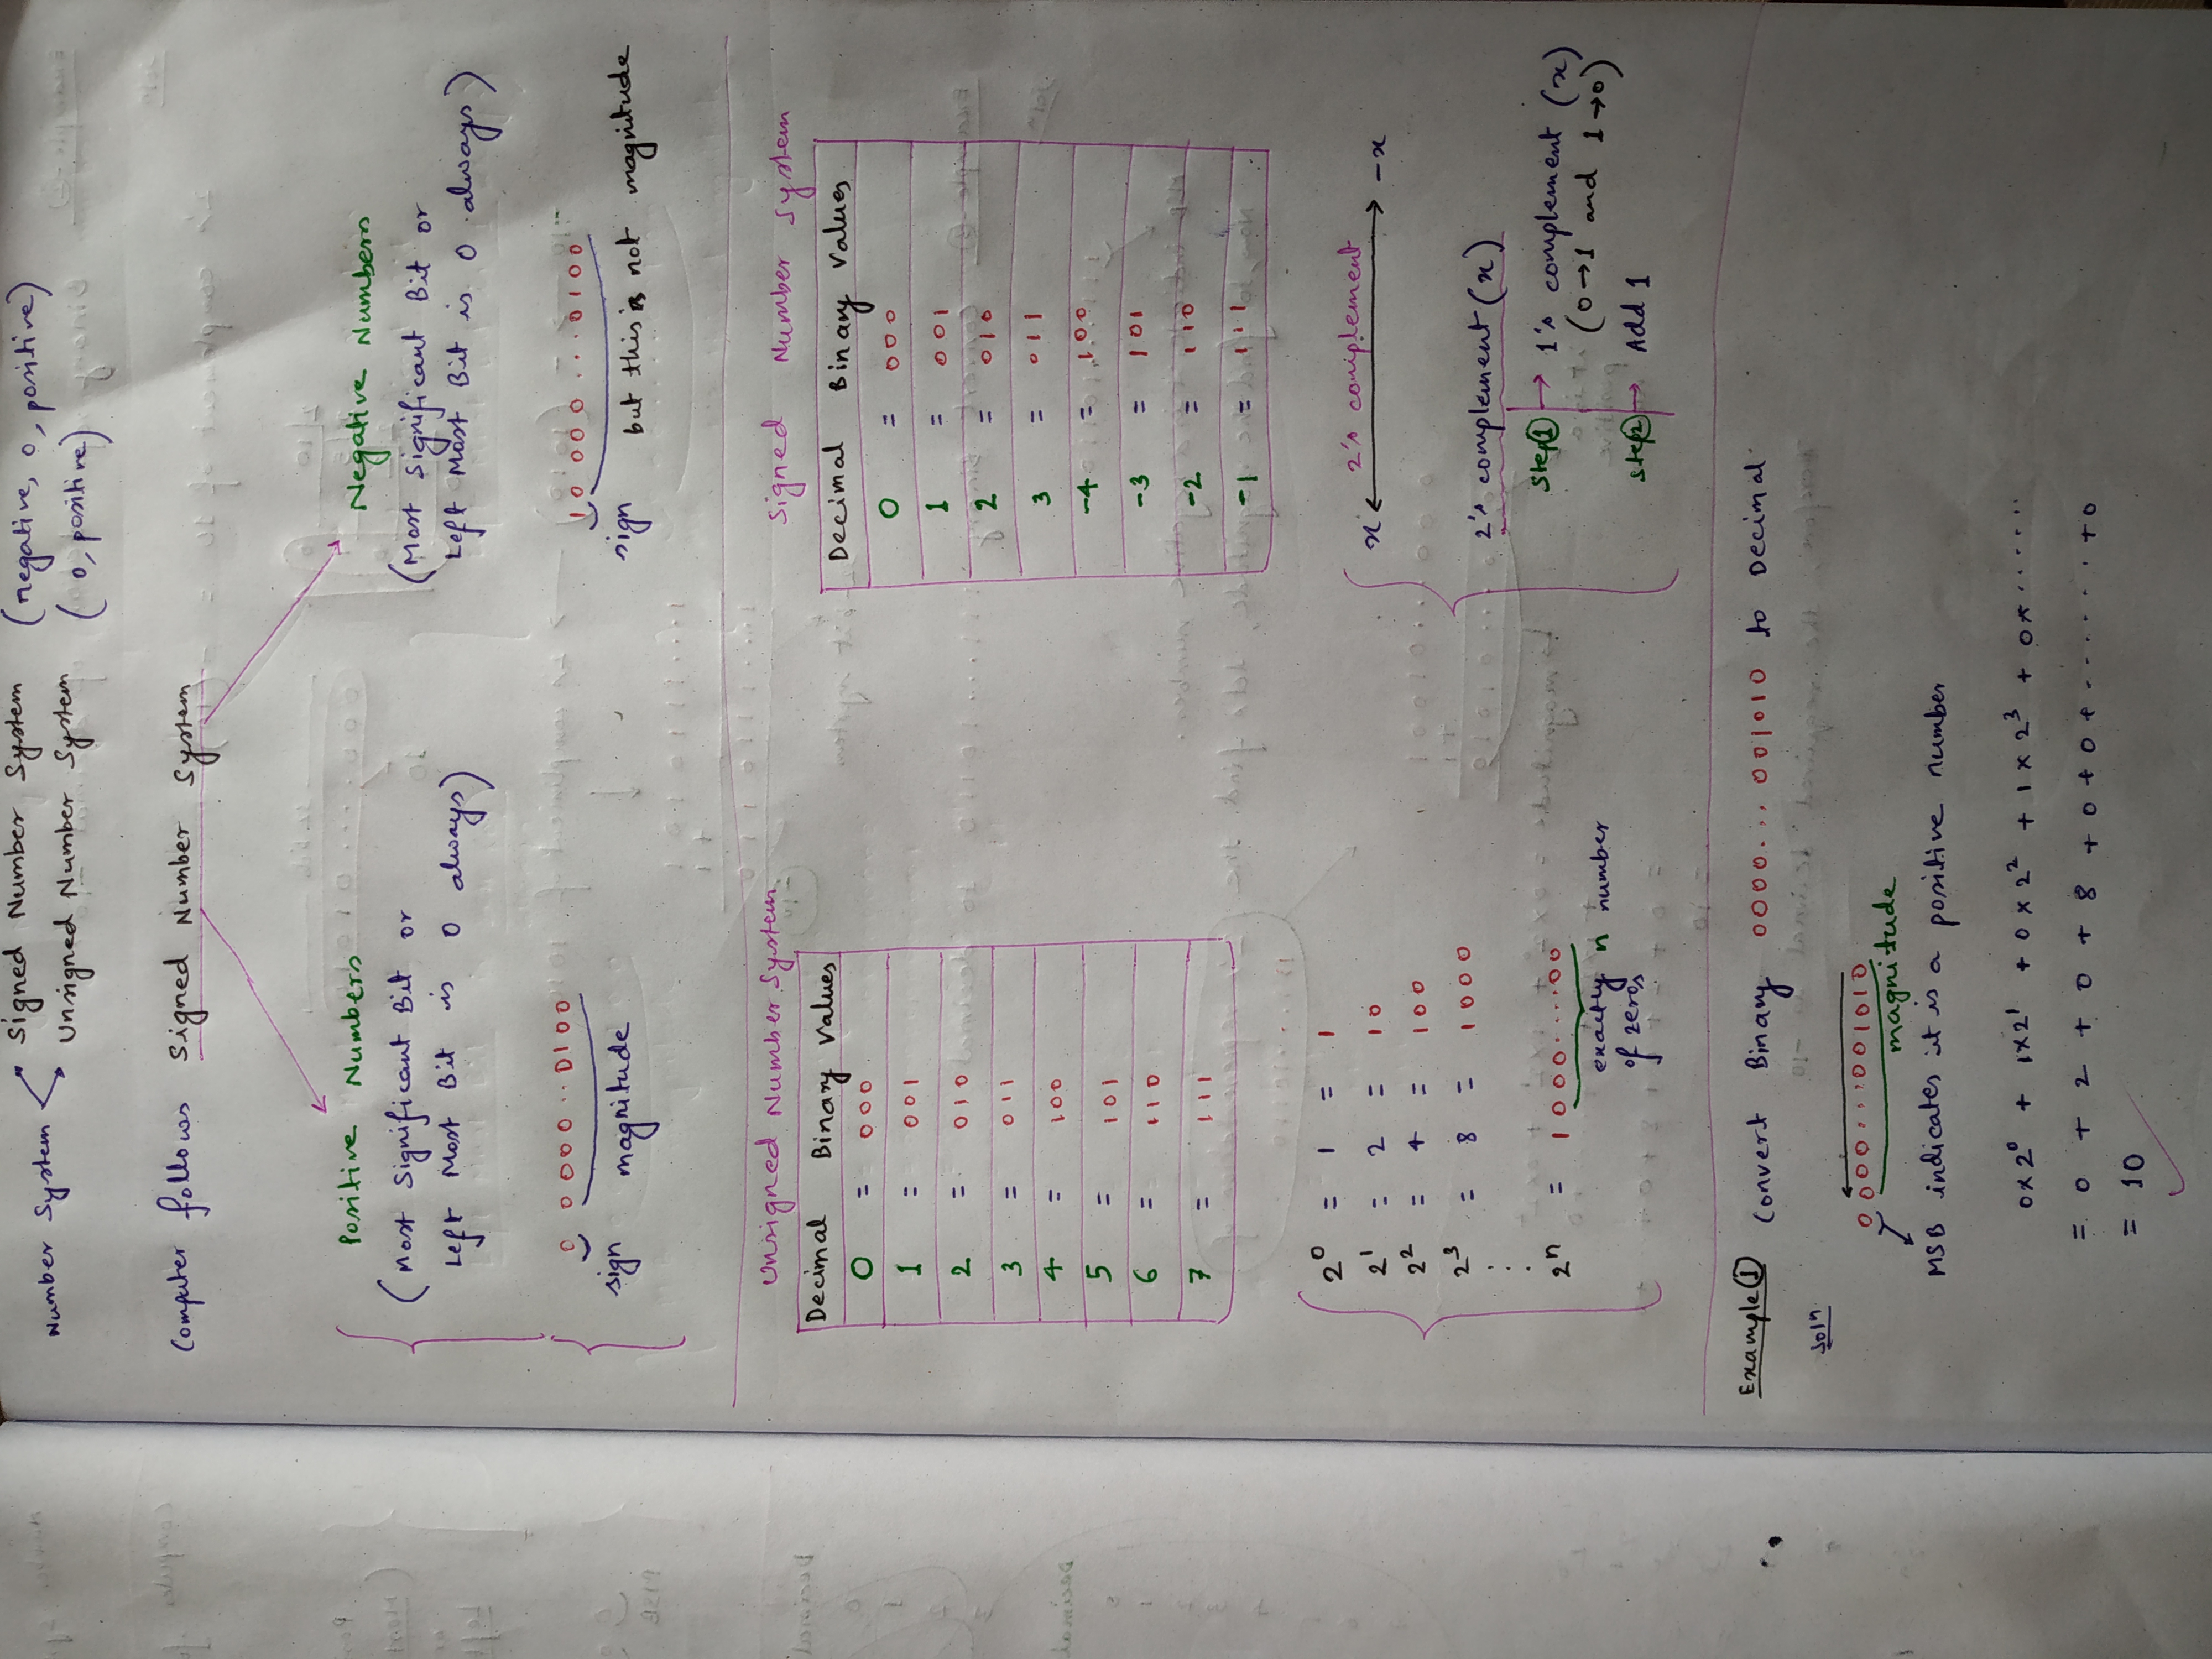 Number System
Signed Number System (negative, 0, positive)
Unsigned Number System (0, positive)
Computer follows Signed Number System
Positive Numbers
(Most Significant Bit or
Left Most Bit is 0 always)
0 0000..0100
sign magnitude
Negative Numbers
(Most Significant Bit or
Left Most Bit is 0 always)
10 000...0100
sign but this is not magnitude
Unsigned Number System
Decimal Binary Values
0 = 000
1 = 001
2 = 010
3 = 011
4 = 100
5 = 101
6 = 110
7 = 111
Signed Number System
Decimal Binary Values
0 = 000
1 = 001
2 = 010
3 = 011
-4 = 100
-3 = 101
-2 = 110
-1 = 111
2⁰ = 1 = 1
2¹ = 2 = 10
2² = 4 = 100
2³ = 8 = 1000
2ⁿ = 1000.....00
exactly n number
of zeros
2's complement
x ⟷ -x
2's complement (x)
Step① → 1's complement (x)
(0→1 and 1→0)
Step② → Add 1
Example① Convert Binary 0000...001010 to Decimal
Solⁿ
0000....001010
magnitude
MSB indicates it is a positive number
0×2⁰ + 1×2¹ + 0×2² + 1×2³ + 0×......
= 0 + 2 + 0 + 8 + 0+0+.......+0
= 10